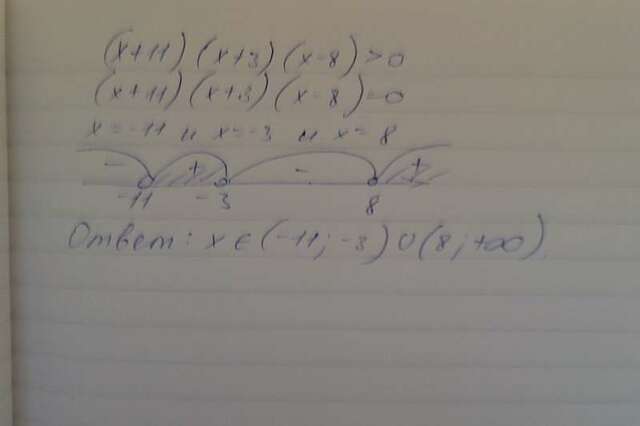 (x+11)(x+3)(x-8)>0
(x+11)(x+3)(x-8)=0
x=-11 и x=-3 и x=8
- + - +
-11 -3 8
Ответ: x∈(-11;-3)∪(8;+∞)